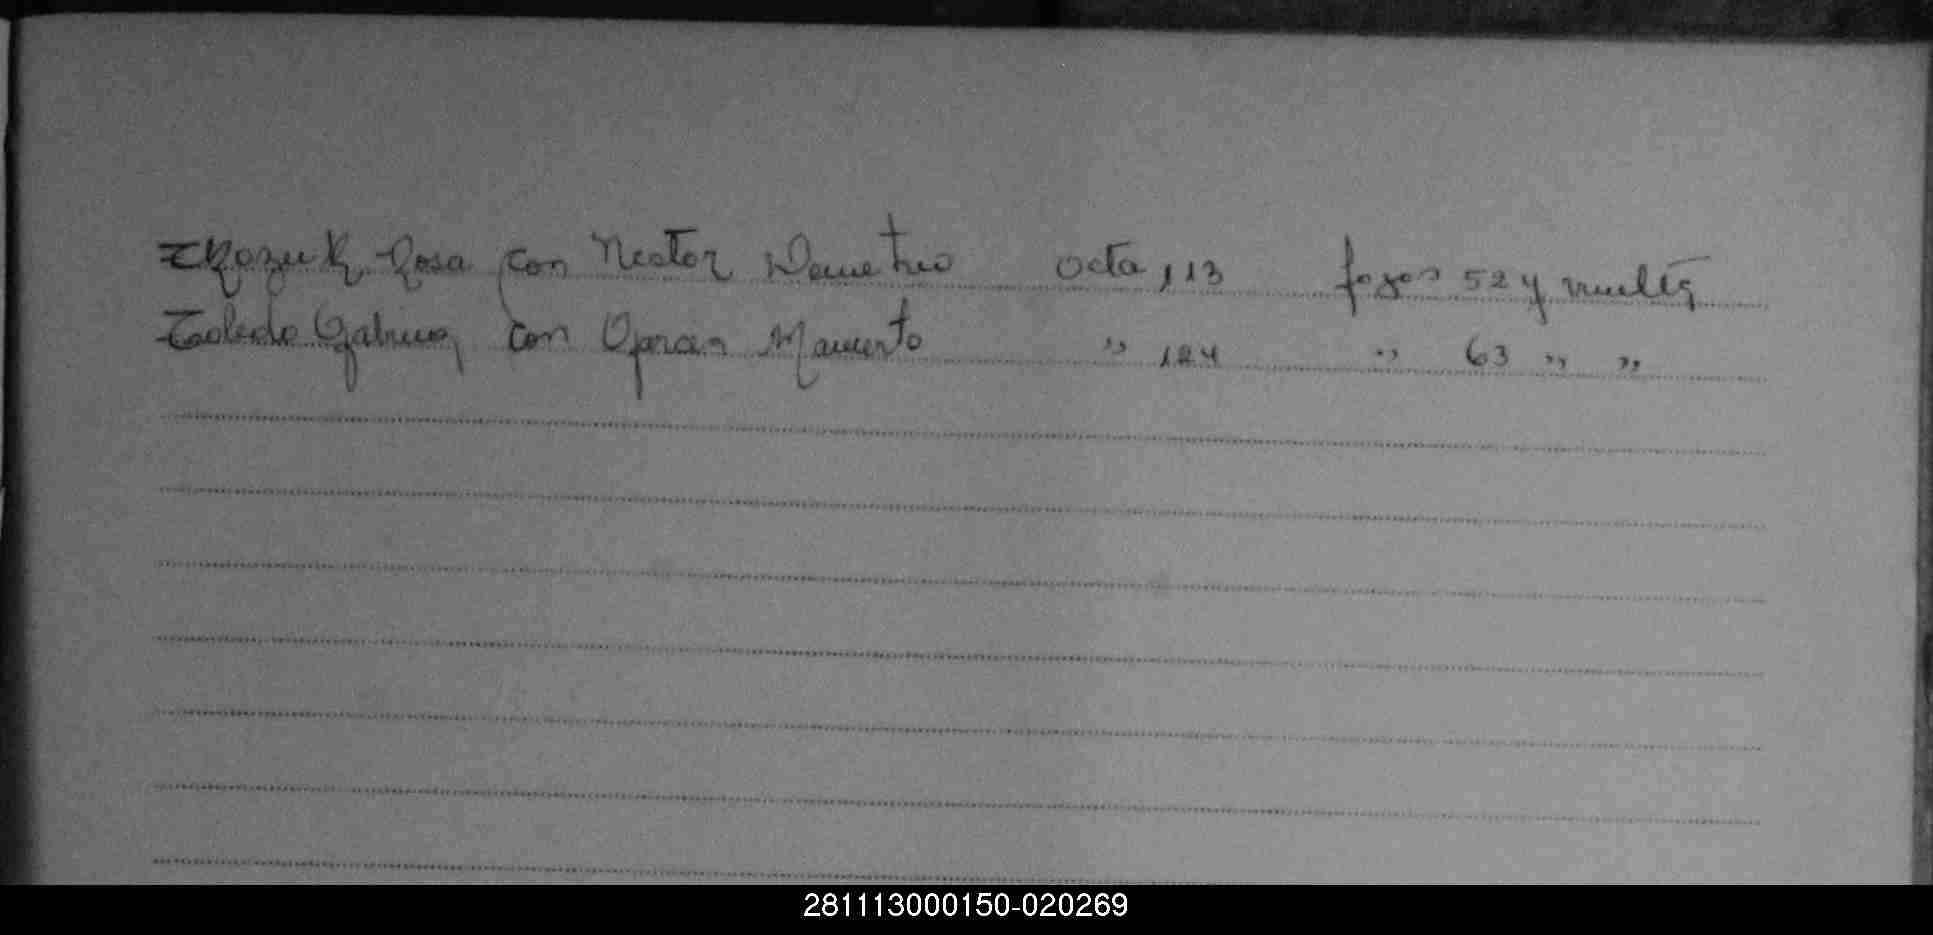 Tkozuk Rosa con Nestor Demetrio acta 113 fojas 52 y vuelta
Toledo Gabina con Operan Mamerto " 124 " 63 " "
281113000150-020269